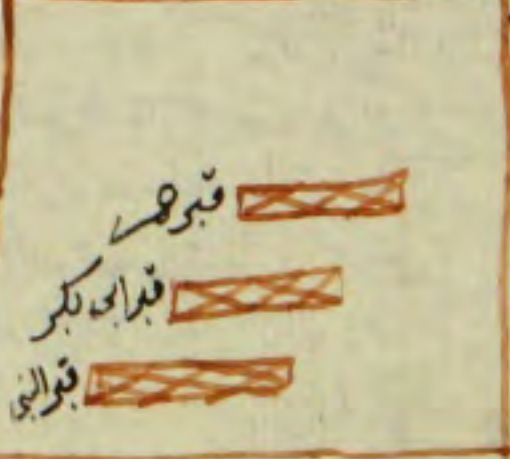 قبر عمر
قبر ابى بكر
قبر النبى